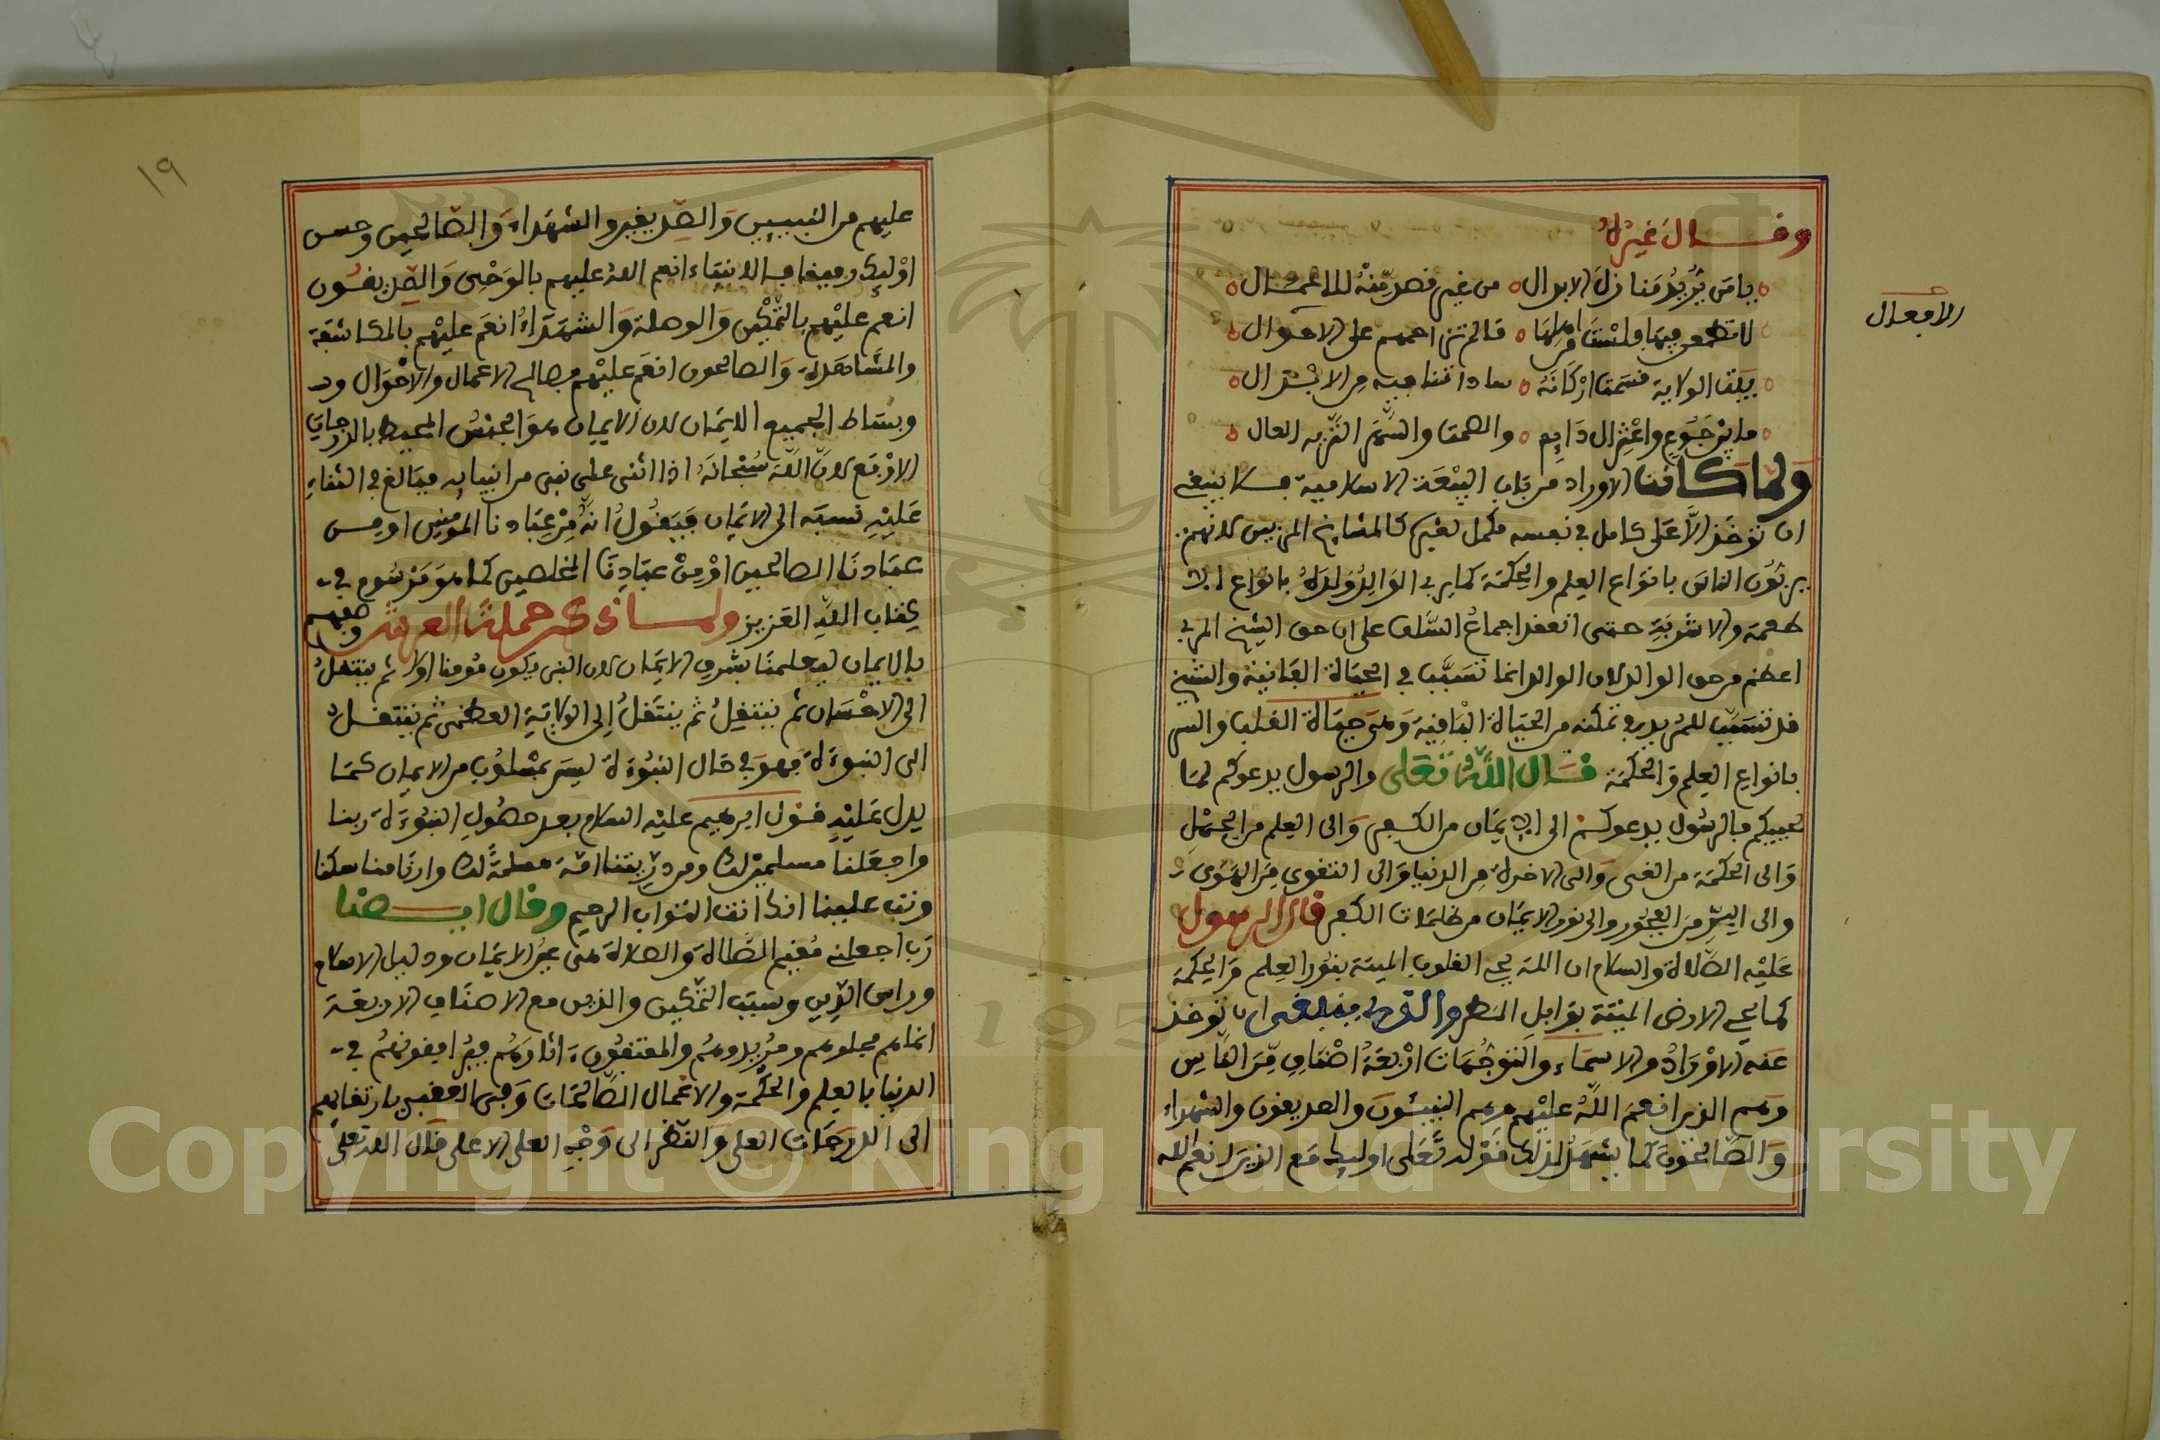 وقال غيره
يا من يريد منازل الابدال من غير قصد منه للاعمال
لا تطمعن فيها ولست من اهلها ان لم تزاحمهم على الاحوال
بيت الولاية قسمت اركانه ساداتنا فيه من الابدال
ما بين جوع واعتزال دايم والصمت والسهر النزيه العال
ولما كانت الاوراد من باب البيعة الاسلامية فلا ينبغي
ان توخذ الا على كامل في نفسه مكمل لغيره كالمشايخ المربين لانهم
يربون الناس بانواع العلم والحكمة كما يربي الوالد ولده بانواع الا
طعمة والاشربة حتى انعقد اجماع السلف على ان حق الشيخ المربي
اعظم من حق الوالد لان الوالد انما تسبب في الحياة الفانية والشيخ
قد تسبب للمريد في تمكنه من الحياة الباقية وهي حياة القلب والسر
بانواع العلم والحكمة قال الله تعلى والرسول يدعوكم لما
يحييكم فالرسول يدعوكم الى الايمان من الكفر والى العلم من الجهل
والى الحكمة من الغي والى الاخرة من الدنيا والى التقوى من الهوى
والى البر من الفجور والى نور الايمان من ظلمات الكفر قال الرسول
عليه الصلاة والسلام ان الله يحي القلوب الميتة بنور العلم والحكمة
كما يحي الارض الميتة بوابل المطر والذي ينبغي ان توخذ
عنه الاوراد والاسماء والتوجهات اربعة اصناف من الناس
وهم الذين انعم الله عليهم وهم النبيئون والصديقون والشهداء
والصالحون كما يشهد لذلك قوله تعلى اوليك مع الذين انعم الله
الافعال
١٩
عليهم من النبيين والصديقين والشهداء والصالحين وحسن
اوليك رفيقا فالانبياء انعم الله عليهم بالوحي والصديقون
انعم عليهم بالتمكين والوصلة والشهداء انعم عليهم بالمكاشفة
والمشاهدة والصالحون انعم عليهم بصالح الاعمال والاحوال
وبساط الجميع الايمان لان الايمان هو الجنس المحيط بالدرجات
الاربع لان الله سبحانه اذا اثنى على نبي من انبيايه فبالغ في الثناء
عليه نسبه الى الايمان فيقول انه من عبادنا المومنين او من
عبادنا الصالحين او من عبادنا المخلصين كما هو مرسوم في
كتاب الله العزيز ولما ذكر حملة العرش وصفهم
بالايمان ليعلمنا بشرف الايمان لان النبي يكون مومنا اولا ثم ينتقل
الى الاحسان ثم ينتقل ثم ينتقل الى الولاية العظمى ثم ينتقل
الى النبوءة فهو في حال النبوءة ليس بمسلوب من الايمان كما
يدل عليه قول ابرهيم عليه السلام بعد حصول النبوءة ربنا
واجعلنا مسلمين لك ومن ذريتنا امة مسلمة لك وارنا مناسكنا
وتب علينا انك انت التواب الرحيم وقال ايضا
رب اجعلني مقيم الصلاة والصلاة هي عين الايمان ودليل الاسلام
وراس الدين وسبب التمكين والذين مع الاصناف الاربعة
انما هم محبوهم ومريدوهم والمقتفون ءاثارهم فيرافقونهم في
الدنيا بالعلم والحكمة والاعمال الصالحات وفي العقبى بارتقايهم
الى الدرجات العلى والنظر الى وجه العلي الاعلى قال الله تعلى
Copyright © King Saud University